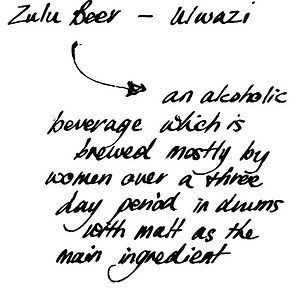 Zulu Beer – Ulwazi
an alcoholic
beverage which is
brewed mostly by
women over a three
day period in drums
with malt as the
main ingredient